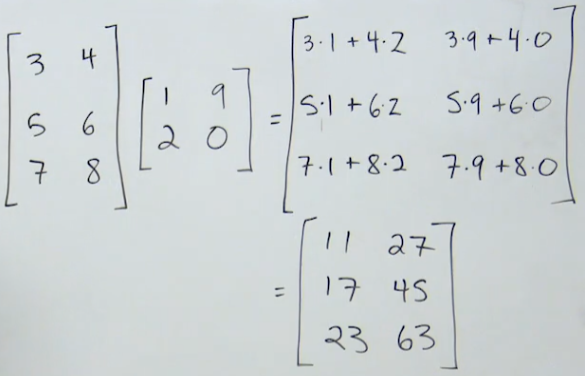 [3 4; 5 6; 7 8] [1 9; 2 0] = [3·1+4·2 3·9+4·0; 5·1+6·2 5·9+6·0; 7·1+8·2 7·9+8·0]
= [11 27; 17 45; 23 63]